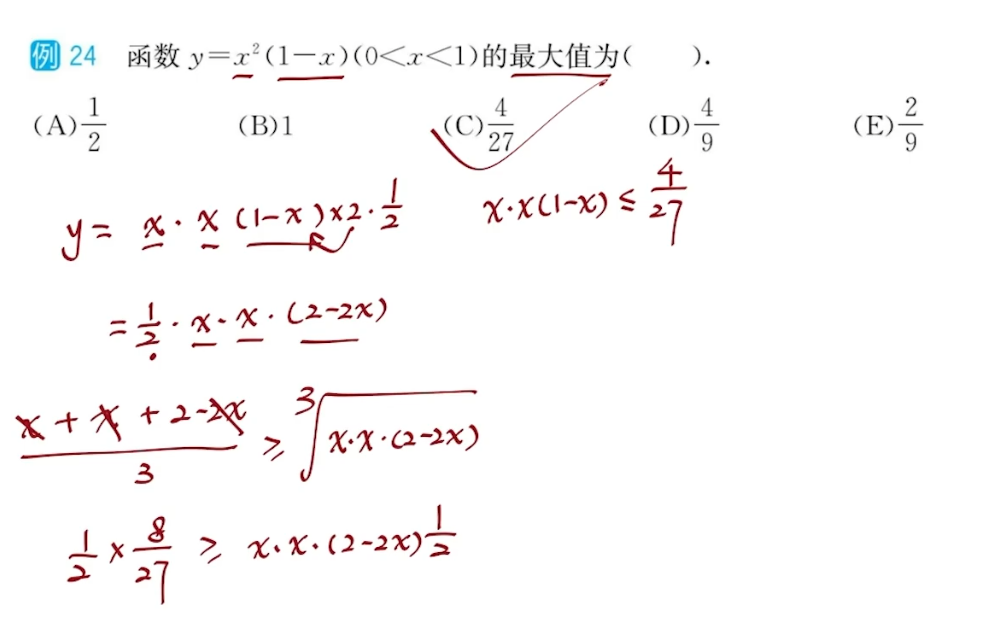 例 24 函数 y=x²(1-x)(0<x<1)的最大值为( ).
(A)1/2 (B)1 (C)4/27 (D)4/9 (E)2/9
y= x·x(1-x)×2·1/2
x·x(1-x)≤4/27
=1/2·x·x·(2-2x)
(x+x+2-2x)/3 ≥ ³√(x·x·(2-2x))
1/2×8/27 ≥ x·x·(2-2x)1/2